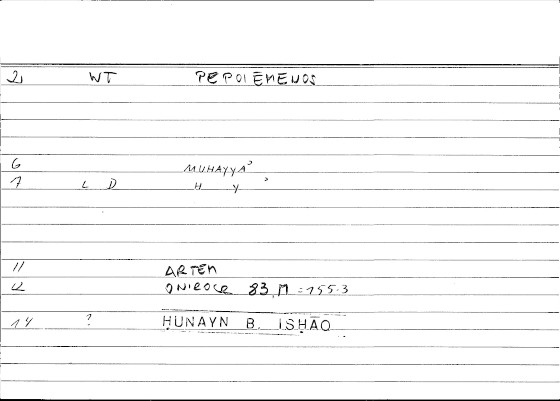 21 WT PEPOIĒMENOS
6 MUHAYYAʾ
7 L D H Y ʾ
11 ARTEM
12 ONIROCR 83, M = 155.3
14 ? ḤUNAYN B. ISḤĀQ